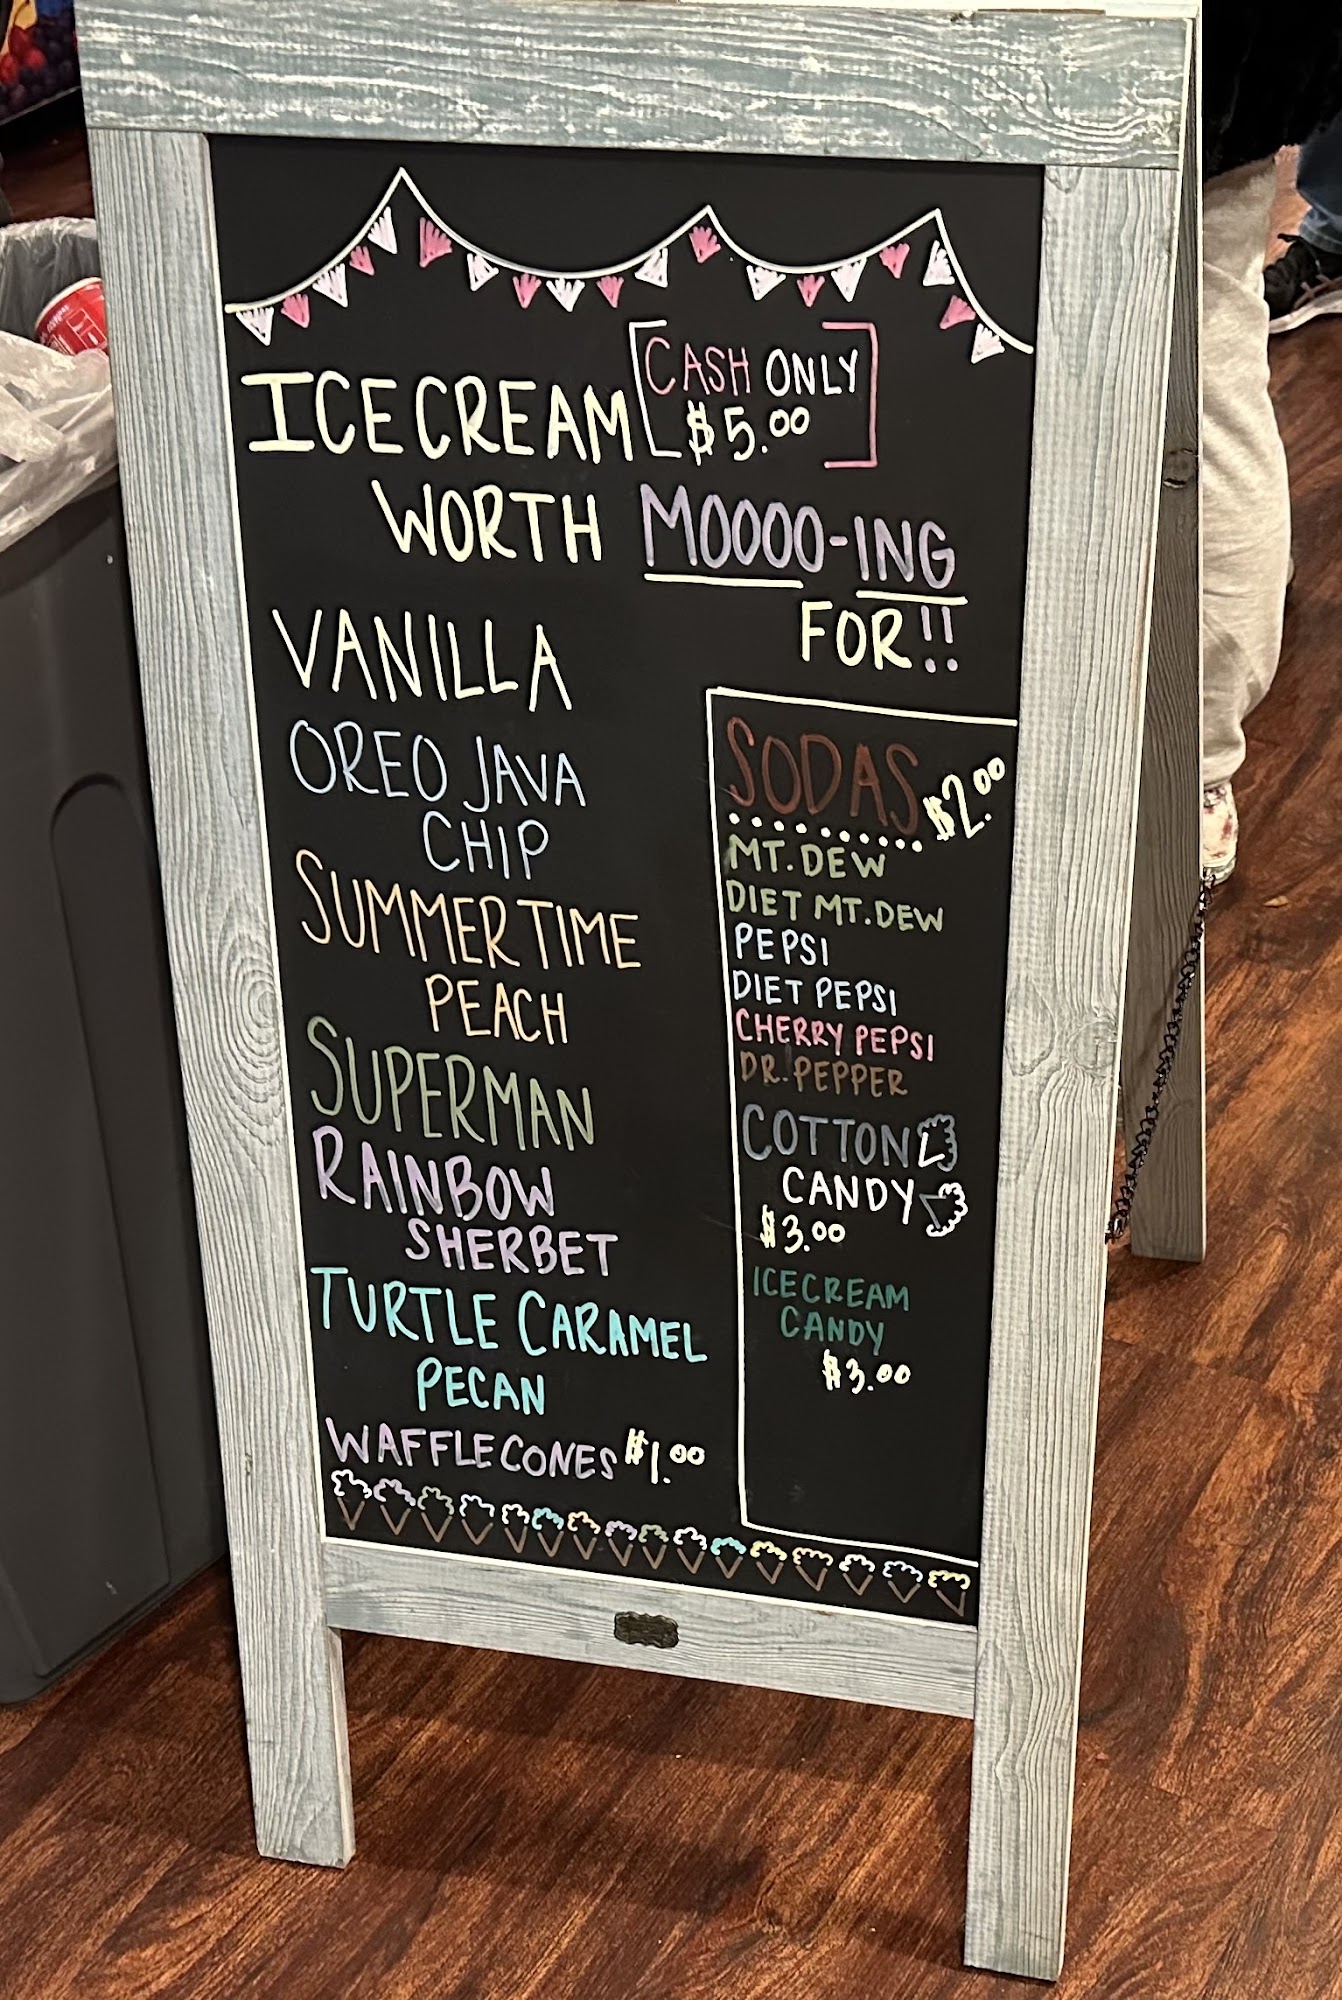 CASH ONLY
$5.00
ICE CREAM
WORTH MOOOO-ING
FOR!!
VANILLA
OREO JAVA
CHIP
SUMMERTIME
PEACH
SUPERMAN
RAINBOW
SHERBET
TURTLE CARAMEL
PECAN
WAFFLE CONES $1.00
SODAS $2.00
MT. DEW
DIET MT. DEW
PEPSI
DIET PEPSI
CHERRY PEPSI
DR. PEPPER
COTTON
CANDY
$3.00
ICECREAM
CANDY
$3.00